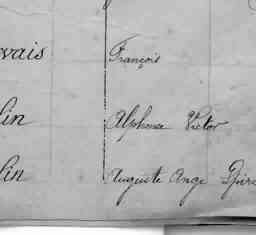 vais François
lin Alphonse Victor
lin Auguste Ange